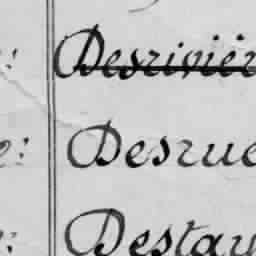 Desrivièr
Desrue
Destau